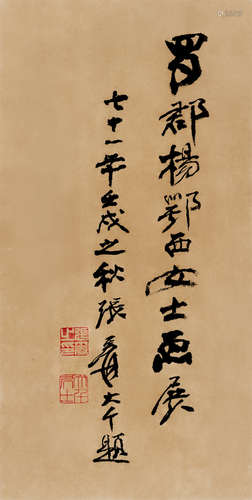 蜀郡楊鄂西女士画展
七十一年壬戌之秋張爰大千題
張爰之印